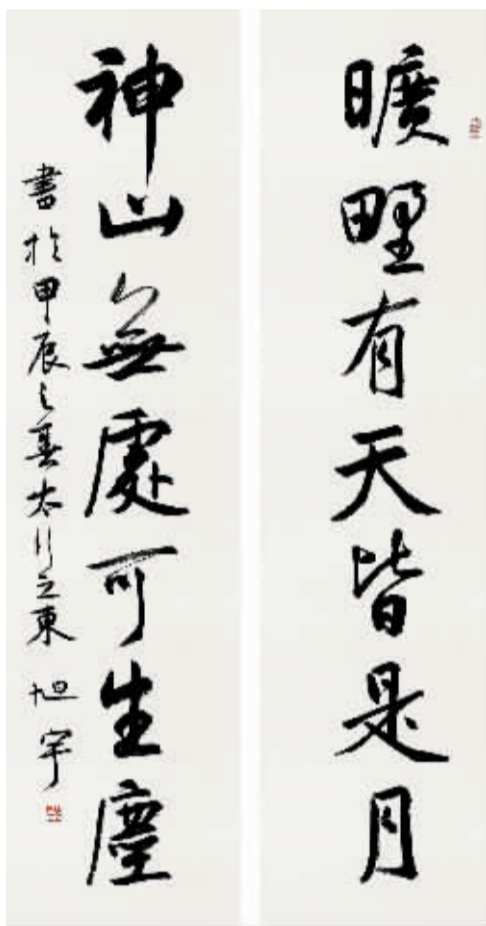 曠野有天皆是月
神山無處可生塵
書於甲辰之春太行之東 旭宇